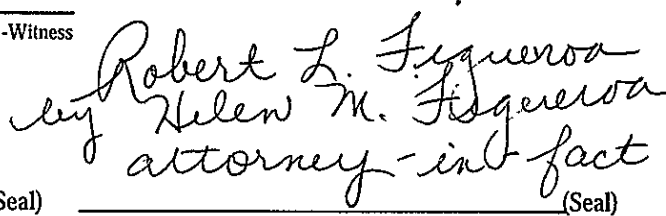 -Witness
Robert L. Figueroa
by Helen M. Figueroa
attorney-in-fact
(Seal) (Seal)